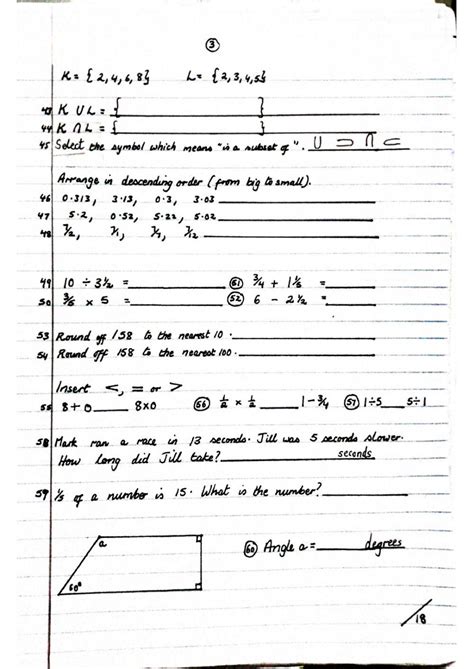 3
K = { 2, 4, 6, 8}    L = {2, 3, 4, 5}
43 K ∪ L = {            }
44 K ∩ L = {            }
45 Select the symbol which means "is a subset of". ∪ ⊃ ∩ ⊂
Arrange in descending order (from big to small).
46 0·313, 3·13, 0·3, 3·03 ______
47 5·2, 0·52, 5·22, 5·02 ______
48 7/2, 7/1, 7/7, 7/12 ______
49 10 ÷ 3½ = ______ (51) ¾ + 1⅙ = ______
50 3/5 × 5 = ______ (52) 6 - 2½ = ______
53 Round off 158 to the nearest 10. ______
54 Round off 158 to the nearest 100. ______
Insert <, = or >
55 8+0 ____ 8×0 (56) ½ × ½ ____ 1-¾ (57) 1÷5 ____ 5÷1
58 Mark ran a race in 13 seconds. Jill was 5 seconds slower.
How long did Jill take? ______ seconds
59 ⅓ of a number is 15. What is the number? ______
a
60°
(60) Angle a = ______ degrees
/18